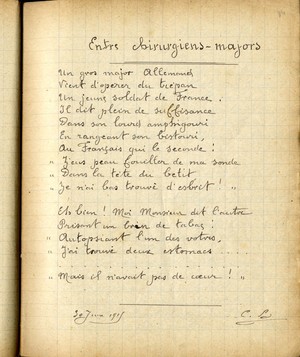 Entre Chirurgiens-majors
Un gros major Allemand
Vient d'opérer du trépan
Un jeune soldat de France.
Il dit plein de suffisance
Dans son lourd amphigouri
En rangeant son bistouri,
Au Français qui le seconde :
" J'eus peau fouiller de ma sonde
" Dans la tête du betit
" Je n'ai bas trouvé d'esbrit ! "
Eh bien ! Moi Monsieur dit l'autre
Prisant un brin de tabac :
" Autopsiant l'un des vôtres,
" J'ai trouvé deux estomacs ....
" Mais il n'avait pas de cœur ! "
1915